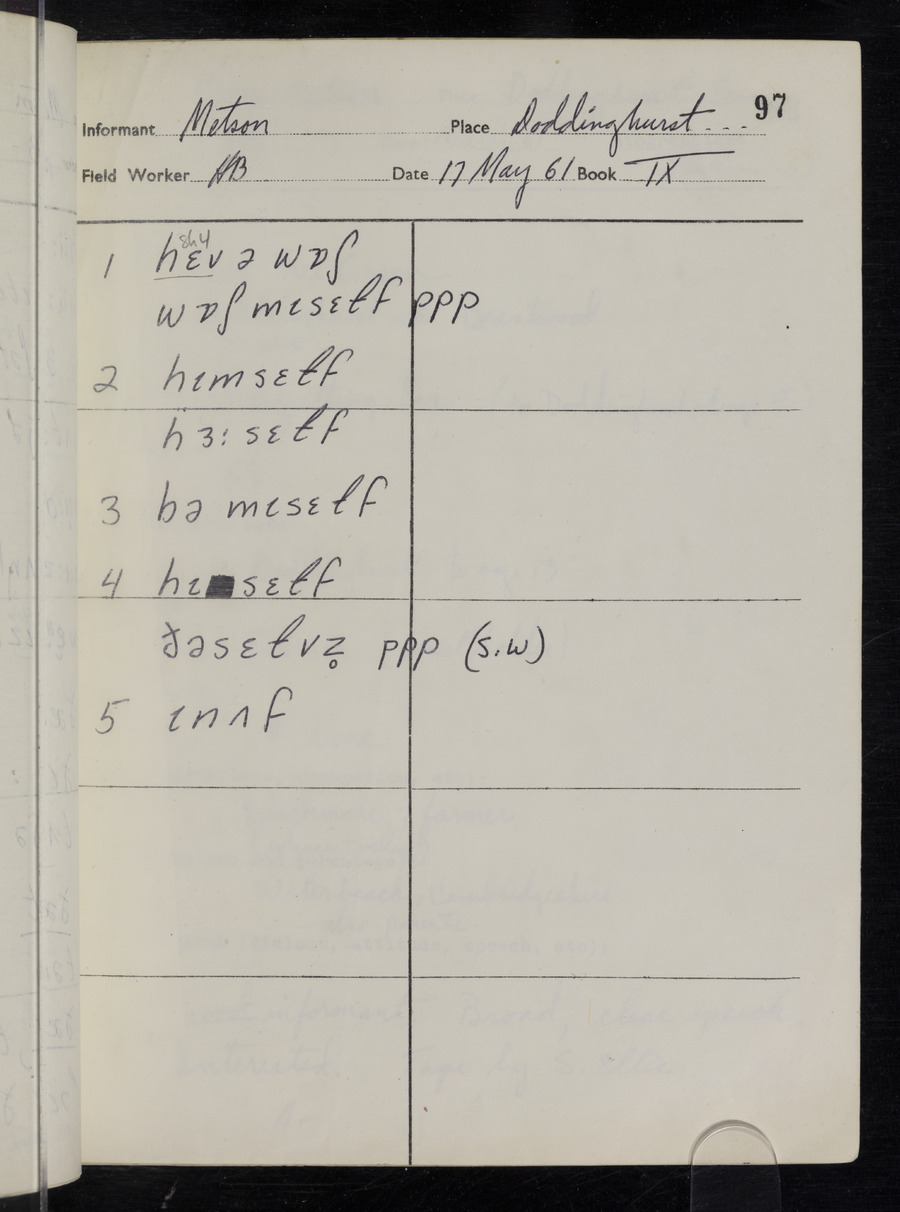 97
Informant Metson Place Doddinghurst
Field Worker HB Date 17 May 61 Book IX
8h4
1 hɛv ə wɒʃ
wɒʃ mɪsɛɫf ppp
2 hɪmsɛɫf
hɜ:sɛɫf
3 bə mɪsɛɫf
4 hɪsɛɫf
ðəsɛɫvz̥ ppp (s.w)
5 ɪnʌf